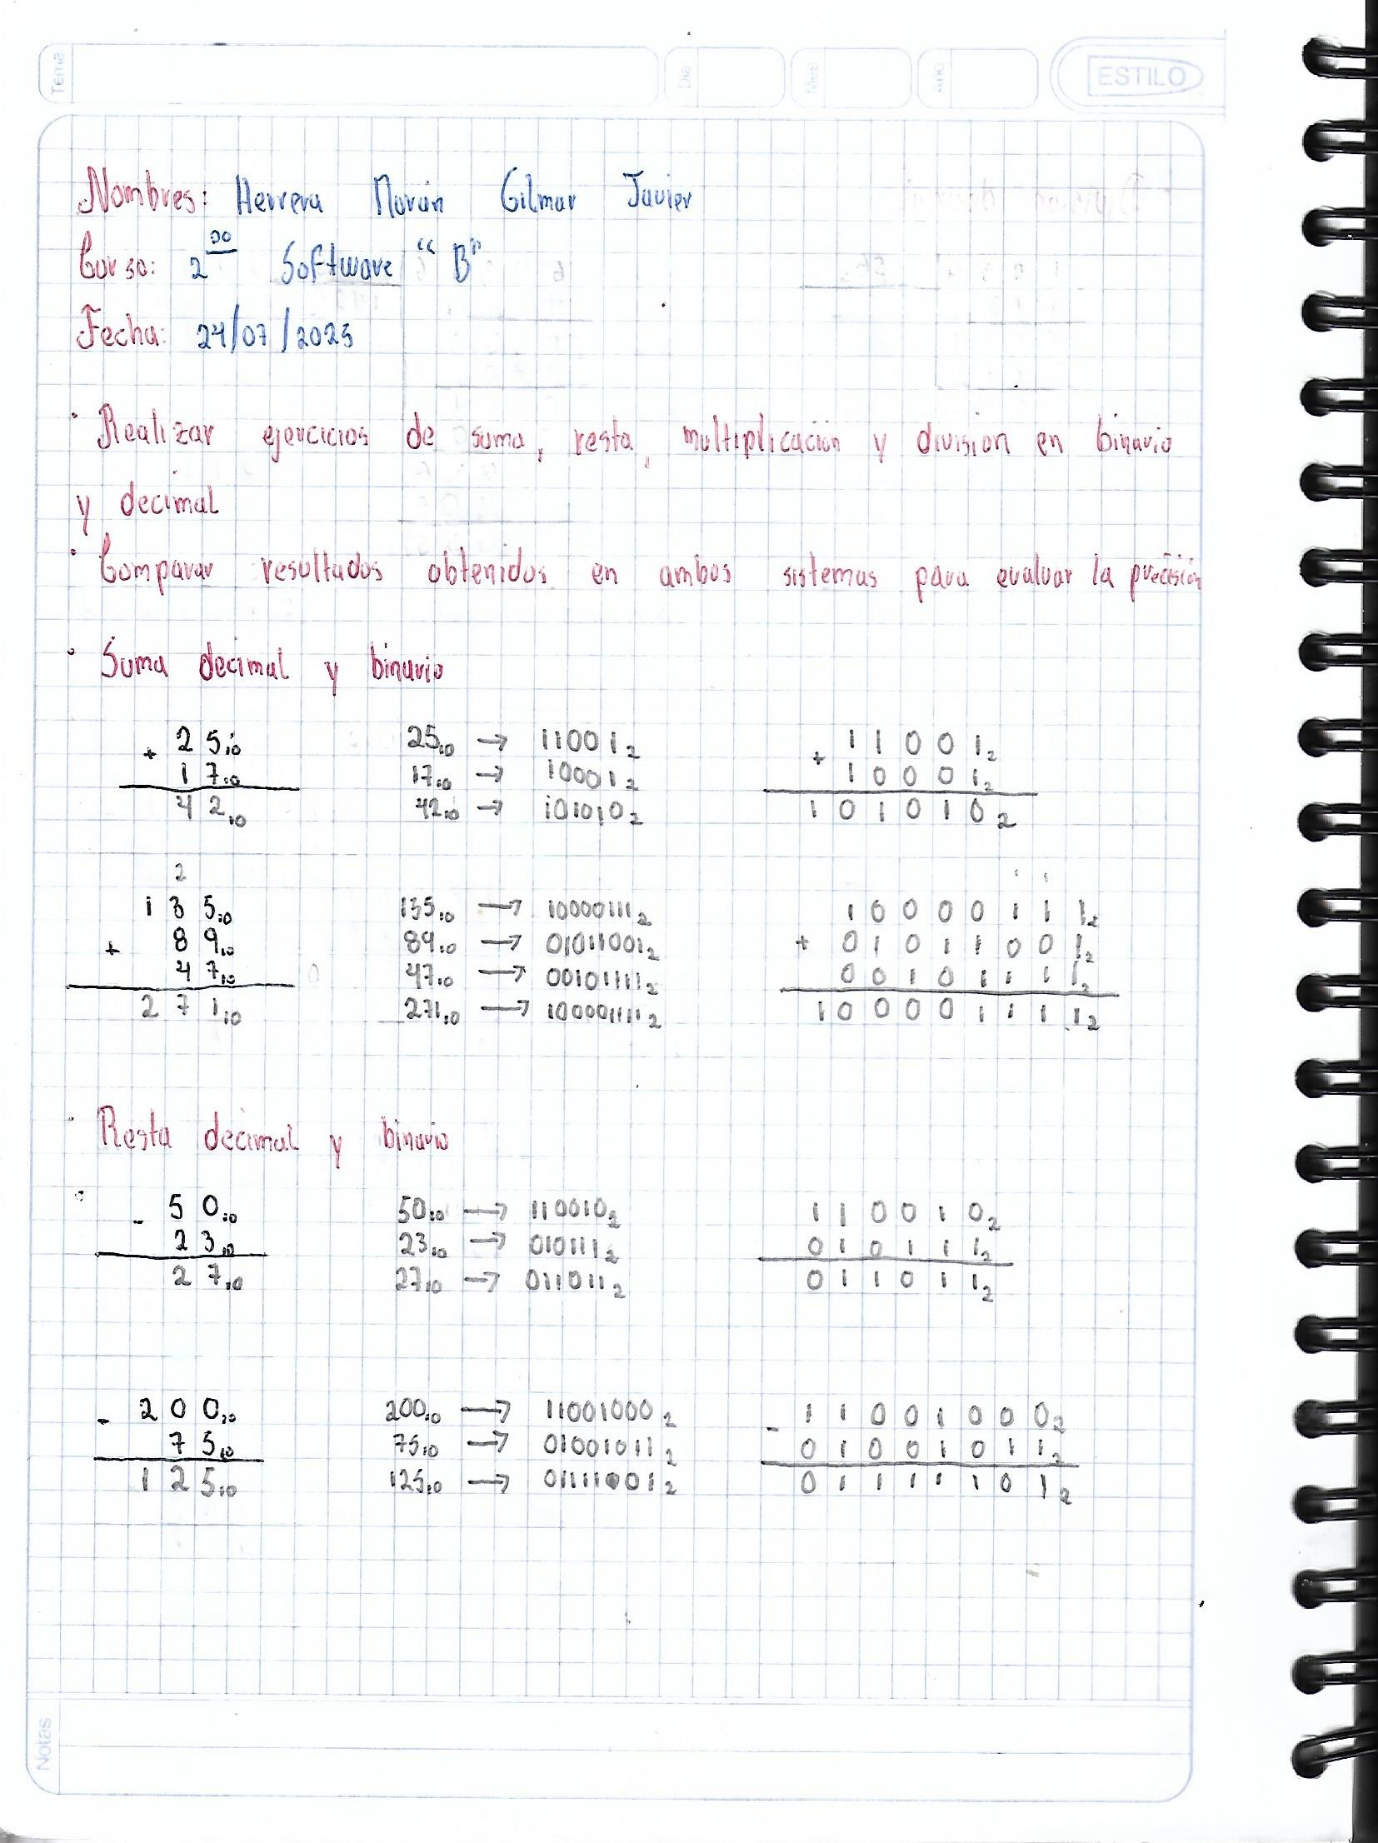 Tema Día Mes Año ESTILO
Nombres: Herrera Morán Gilmar Javier
Curso: 2do Software "B"
Fecha: 24/07/2025
· Realizar ejercicios de suma, resta, multiplicación y division en binario
y decimal
· Comparar resultados obtenidos en ambos sistemas para evaluar la precisión
· Suma decimal y binario
+ 25₁₀ 25₁₀ → 11001₂ + 11001₂
17₁₀ 17₁₀ → 10001₂ 10001₂
42₁₀ 42₁₀ → 101010₂ 101010₂
2
135₁₀ 135₁₀ → 10000111₂ 10000111₂
+ 89₁₀ 89₁₀ → 01011001₂ + 01011001₂
47₁₀ 47₁₀ → 00101111₂ 00101111₂
271₁₀ 271₁₀ → 100001111₂ 100001111₂
· Resta decimal y binario
- 50₁₀ 50₁₀ → 110010₂ 110010₂
23₁₀ 23₁₀ → 010111₂ 010111₂
27₁₀ 27₁₀ → 011011₂ 011011₂
- 200₁₀ 200₁₀ → 11001000₂ - 11001000₂
75₁₀ 75₁₀ → 01001011₂ 01001011₂
125₁₀ 125₁₀ → 01111101₂
Notas